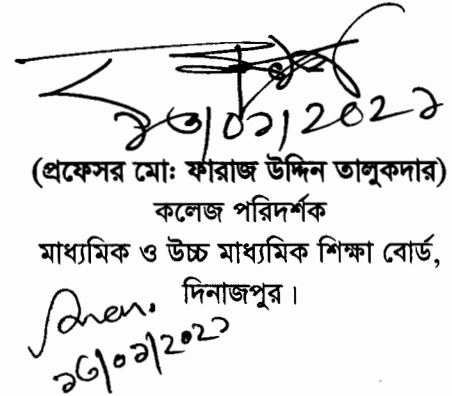 ১৩/০১/২০২১
(প্রফেসর মোঃ ফারাজ উদ্দিন তালুকদার)
কলেজ পরিদর্শক
মাধ্যমিক ও উচ্চ মাধ্যমিক শিক্ষা বোর্ড,
দিনাজপুর।
১৩/০১/২০২১